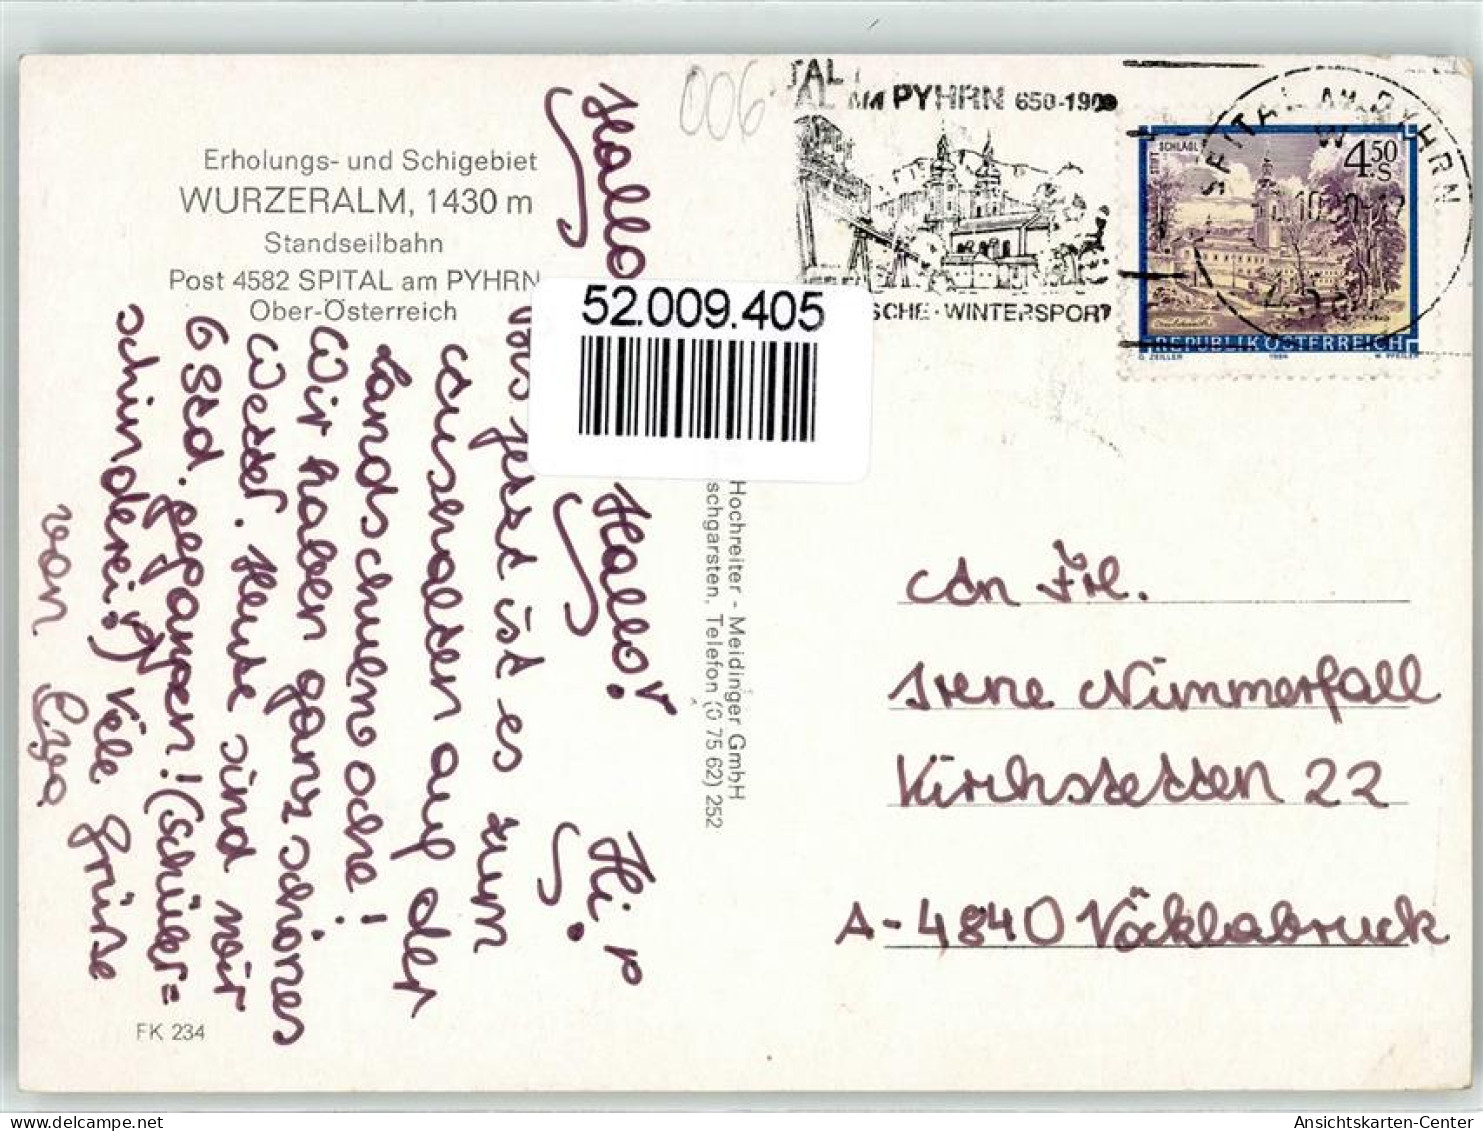 006
TAL
AL AM PYHRN 650-1990
SCHE · WINTERSPORT
SPITAL AM PYHRN
STIFT SCHLÄGL
4.50 S
REPUBLIK ÖSTERREICH
G. ZEILLER 1984 W. PFEILER
Erholungs- und Schigebiet
WURZERALM, 1430 m
Standseilbahn
Post 4582 SPITAL am PYHRN
Ober-Österreich
52.009.405
Hallo Hallo! Hi!
jetzt ist es zum
aushalten auf der
Landschulwoche!
Wir haben ganz schönes
Wetter. Heute sind wir
6 Std. gegangen! (Schüler=
schinderei!) Viele Grüße
von
Hochreiter - Meidinger GmbH
schgarsten, Telefon (0 75 62) 252
An Frl.
Irene Nimmerfall
Kirchstetten 22
A-4840 Vöcklabruck
FK 234
Ansichtskarten-Center